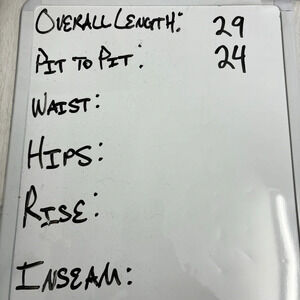 OVERALL LENGTH: 29
PIT TO PIT: 24
WAIST:
HIPS:
RISE:
INSEAM: